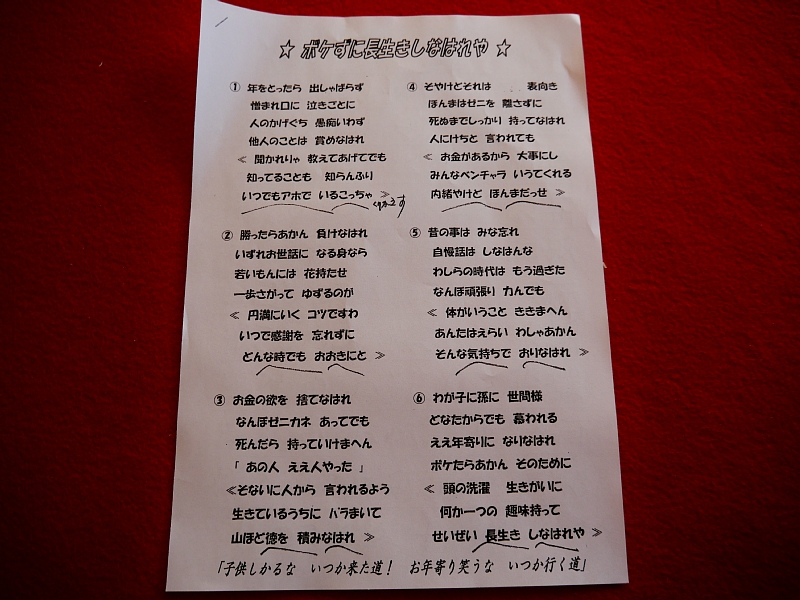 ☆ ボケずに長生きしなはれや ☆
① 年をとったら 出しゃばらず
憎まれ口に 泣きごとに
人のかげぐち 愚痴いわず
他人のことは 賞めなはれ
≪ 聞かれりゃ 教えてあげてでも
知ってることも 知らんふり
いつでもアホで いるこっちゃ ≫
くりかえす
② 勝ったらあかん 負けなはれ
いずれお世話に なる身なら
若いもんには 花持たせ
一歩さがって ゆずるのが
≪ 円満にいく コツですわ
いつで感謝を 忘れずに
どんな時でも おおきにと ≫
③ お金の欲を 捨てなはれ
なんぼゼニカネ あってでも
死んだら 持っていけまへん
「 あの人 ええ人やった 」
≪そないに人から 言われるよう
生きているうちに バラまいて
山ほど徳を 積みなはれ ≫
④ そやけどそれは 表向き
ほんまはゼニを 離さずに
死ぬまでしっかり 持ってなはれ
人にけちと 言われても
≪ お金があるから 大事にし
みんなベンチャラ いうてくれる
内緒やけど ほんまだっせ ≫
⑤ 昔の事は みな忘れ
自慢話は しなはんな
わしらの時代は もう過ぎた
なんぼ頑張り 力んでも
≪ 体がいうこと ききまへん
あんたはえらい わしゃあかん
そんな気持ちで おりなはれ ≫
⑥ わが子に孫に 世間様
どなたからでも 慕われる
ええ年寄りに なりなはれ
ボケたらあかん そのために
≪ 頭の洗濯 生きがいに
何か一つの 趣味持って
せいぜい 長生き しなはれや ≫
「子供しかるな いつか来た道! お年寄り笑うな いつか行く道」